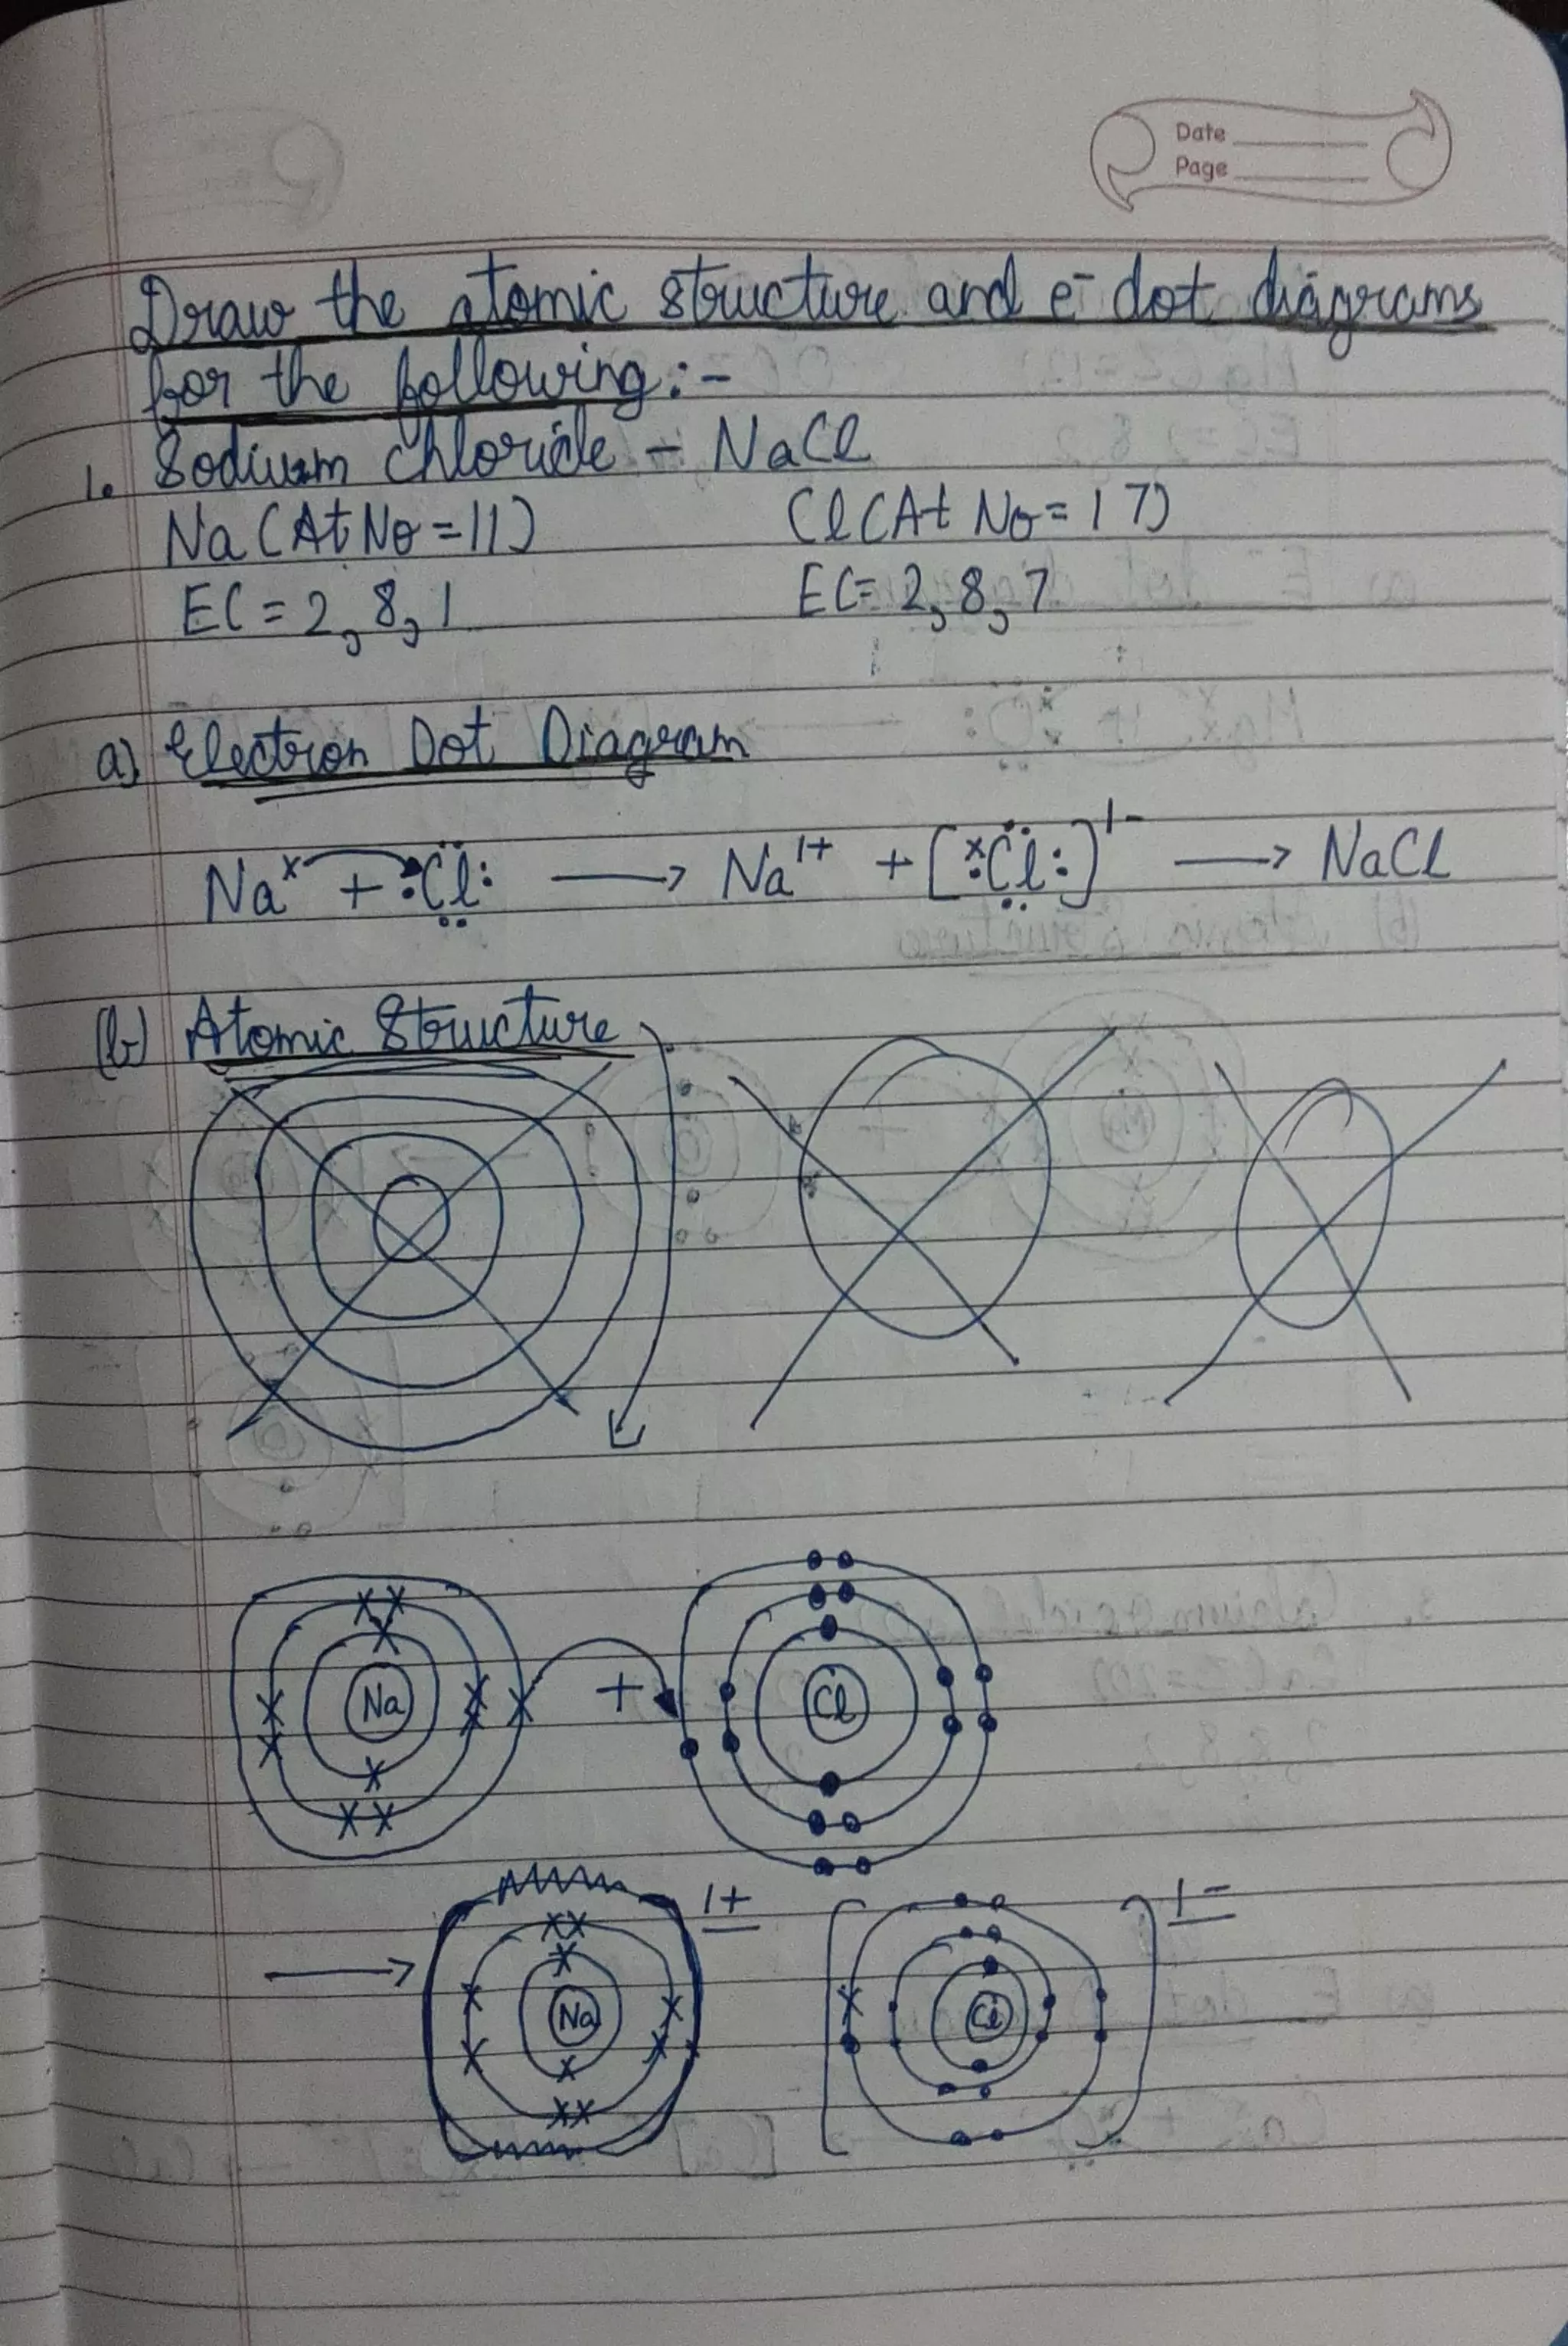 Date
Page
Draw the atomic structure and e⁻ dot diagrams
for the following:-
1. Sodium chloride - NaCl
Na (At No = 11) Cl (At No = 17)
EC = 2, 8, 1 EC = 2, 8, 7
a) Electron Dot Diagram
Naˣ + :C̤̈l: ⟶ Na¹⁺ + [ˣ:C̤̈l:]¹⁻ ⟶ NaCl
(b) Atomic Structure
Na + Cl
⟶ Na 1+ [Cl] 1-